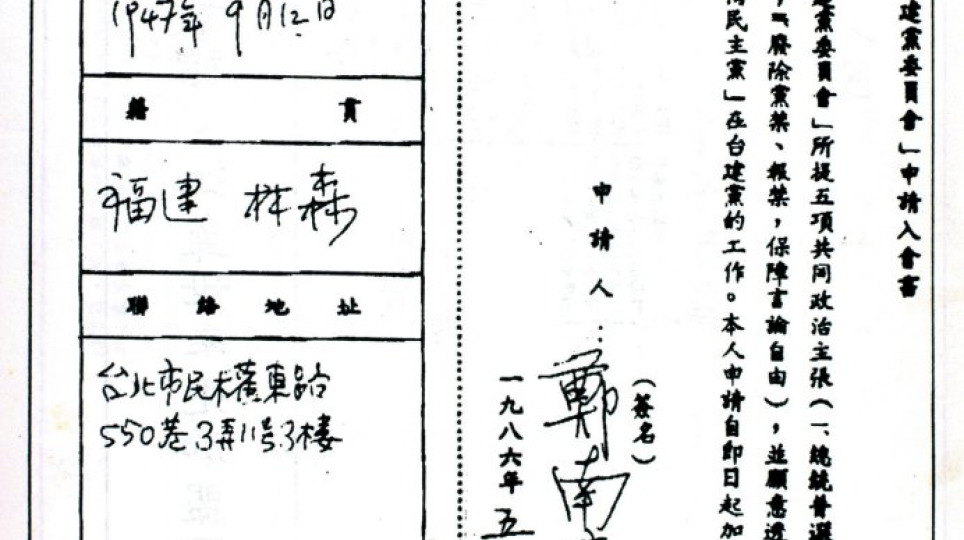 建黨委員會」申請入會書
建黨委員會」所提五項共同政治主張(一、總統普選
廢除黨禁、報禁,保障言論自由),並願意透
民主黨」在台建黨的工作。本人申請自即日起加
申請人:
(簽名)
鄭南
一九八六年五
1947年9月12日
籍貫
福建 林森
聯絡地址
台北市民權東路
550巷3弄11号3樓